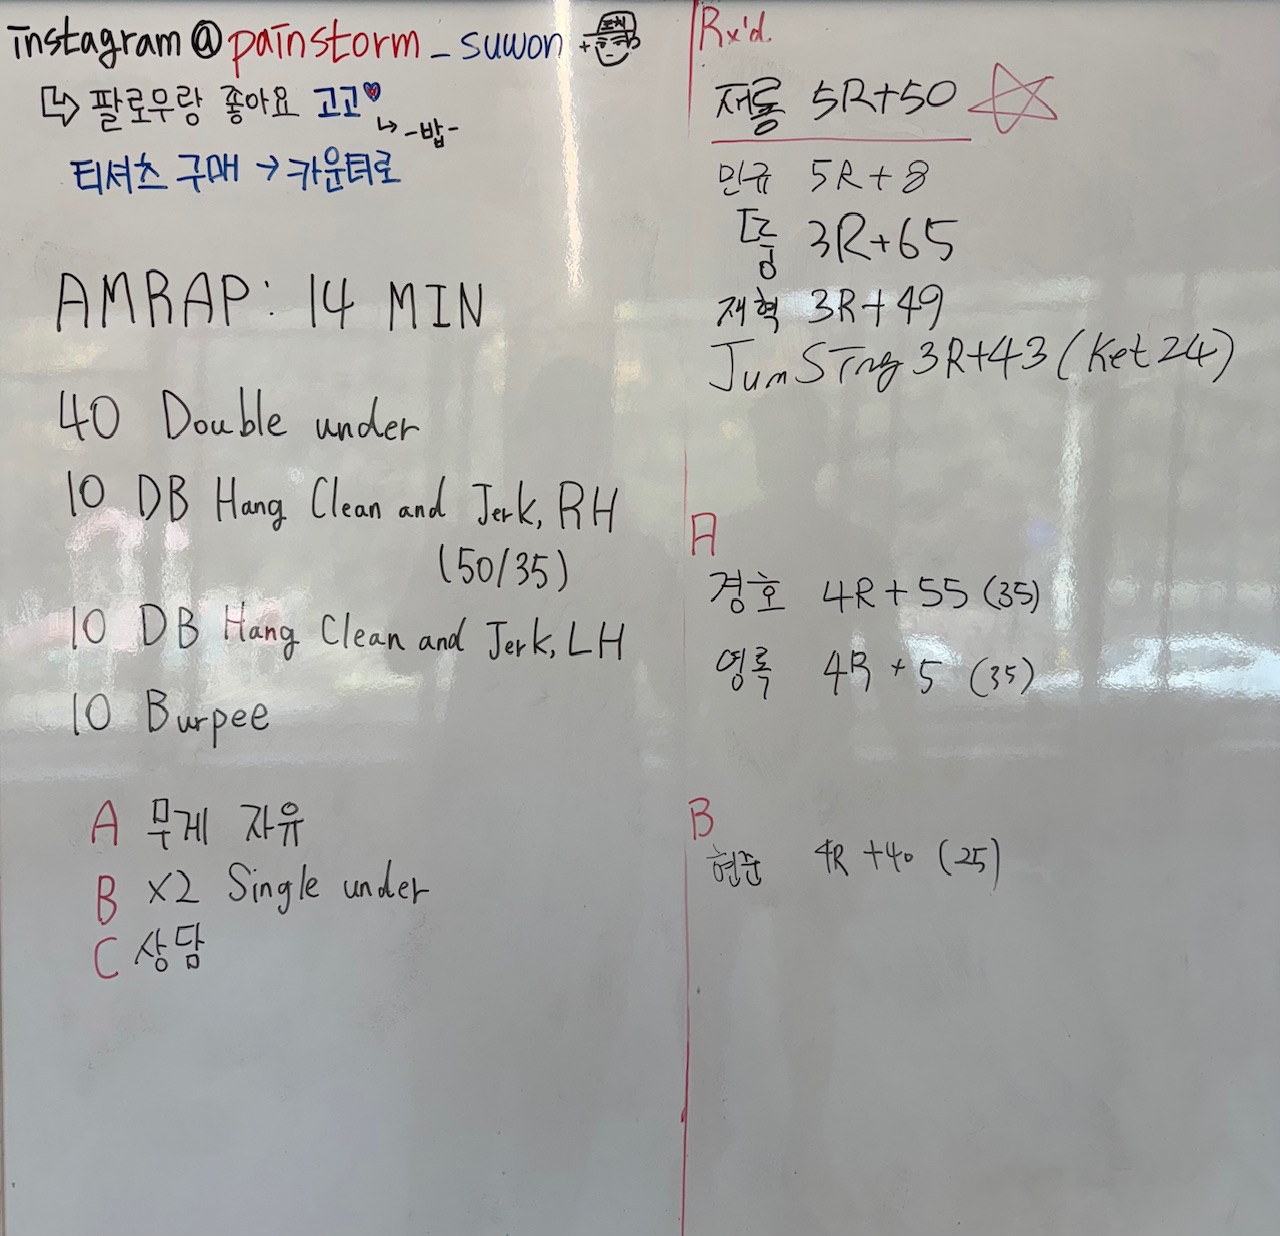 instagram@painstorm_suwon
팔로우랑 좋아요 고고
-밥-
티셔츠 구매 → 카운터로
AMRAP: 14 MIN
40 Double under
10 DB Hang Clean and Jerk, RH
(50/35)
10 DB Hang Clean and Jerk, LH
10 Burpee
A 무게 자유
B x2 Single under
C 상담
Rx'd.
재롱 5R+50
민규 5R+8
3R+65
재혁 3R+49
3R+43 (Ket 24)
A
경호 4R+55 (35)
영록 4R+5 (35)
B
현준 4R+40 (25)